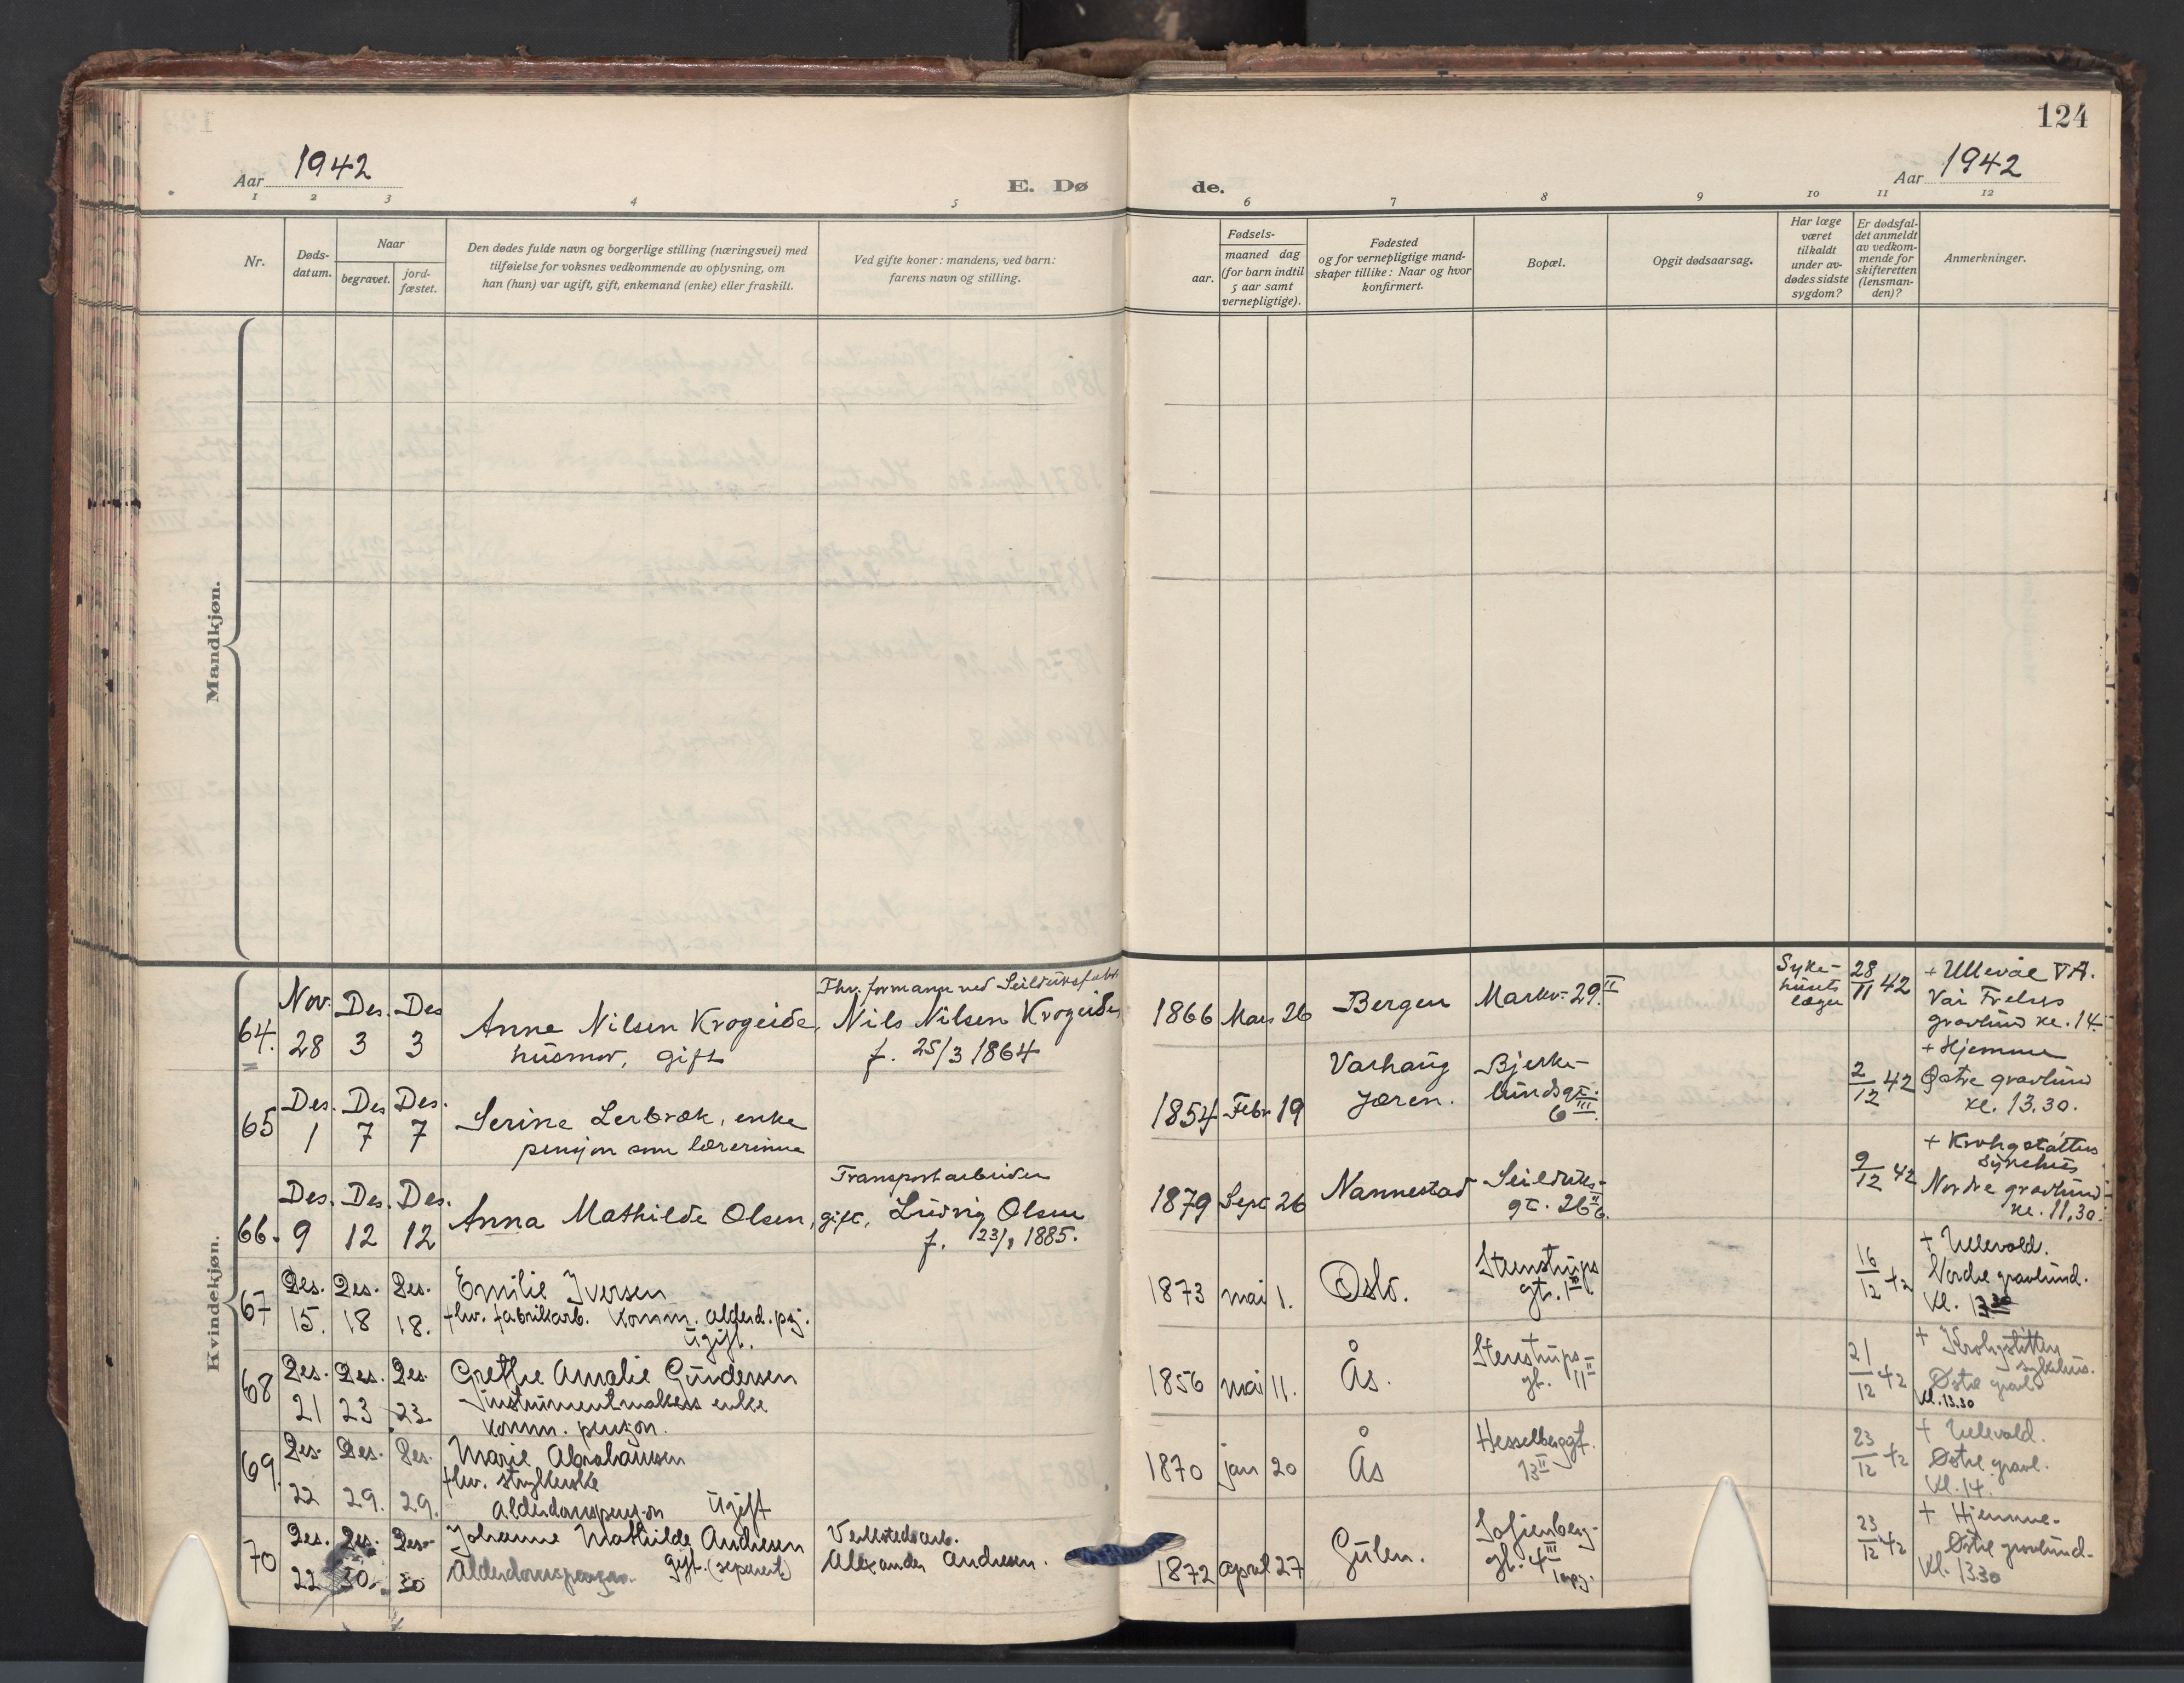 124
Aar 1942
E. Døde.
Aar 1942
1 2 3 4 5 6 7 8 9 10 11 12
Nr.
Døds-
datum.
Naar
begravet.
jord-
fæstet.
Den dødes fulde navn og borgerlige stilling (næringsvei) med
tilføielse for voksnes vedkommende av oplysning, om
han (hun) var ugift, gift, enkemand (enke) eller fraskilt.
Ved gifte koner: mandens, ved barn:
farens navn og stilling.
Fødsels-
aar.
maaned dag
(for barn indtil
5 aar samt
vernepligtige).
Fødested
og for vernepligtige mand-
skaper tillike: Naar og hvor
konfirmert.
Bopæl.
Opgit dødsaarsag.
Har læge
været
tilkaldt
under av-
dødes sidste
sygdom?
Er dødsfal-
det anmeldt
av vedkom-
mende for
skifteretten
(lensman-
den)?
Anmerkninger.
Mandkjøn.
Kvindekjøn.
64.
Nov. 28
Des. 3
Des 3
Anne Nilsen Krogeide,
husmor, gift
Fhv. formann ved Seilduksfabr.
Nils Nilsen Krogeide,
f. 25/3 1864
1866 Mars 26
Bergen
Markv. 29 II
Syke-
husets
læger
28/11 42
+ Ullevål VA.
Vår Frelsers
gravlund kl. 14
65
Des. 1
Des 7
Des. 7
Serine Lerbræk, enke
pensjon som lærerinne
1854 Febr 19
Varhaug
Jæren.
Bjerke-
lundsgt.
6 III.
2/12 42
+ Hjemme
Østre gravlund
kl. 13.30.
66.
Des. 9
Des. 12
Des. 12
Anna Mathilde Olsen, gift,
Transportarbeider
Ludvig Olsen
f. 1885.
1879 Sept 26
Nannestad
Seilduks-
gt. 26 II
9/12 42
+ Krohgstøttens
sykehus
Nordre gravlund
kl. 11,30.
67
Des. 15.
Des. 18
Des. 18.
Emilie Iversen
fhv. fabrikarb. komm. alderd. psj.
ugift.
1873 mai 1.
Oslo.
Stenstrups
gt. 1 III
16/12 42
+ Ullevold.
Nordre gravlund.
Kl. 13 30
68
Des. 21
Des. 23
Des. 23.
Grethe Amalie Gundersen
Instrumentmakers enke
komm. pensjon.
1856 mai 11.
Ås.
Stenstrups-
gt. 11 II
21/12 42
+ Krohgstøttens
sykehus.
Østre gravl.
Kl. 13.30
69.
Des. 22
Des. 29.
Des. 29.
Marie Abrahamsen
fhv. strykerske
Alderdomspensjon ugift
1870 jan 20
Ås
Hesselberggt.
13 II
23/12 42
+ Ullevold.
Østre gravl.
Kl. 14.
70
Des. 22
Des. 30.
Des. 30
Johanne Mathilde Andresen
Alderdomspensjon. gift. (separert)
Verkstedsarb.
Alexander Andresen.
1872 april 27
Gulen.
Sofienberg-
gt. 4 III
23/12 42
+ Hjemme.
Østre gravlund.
Kl. 13.30